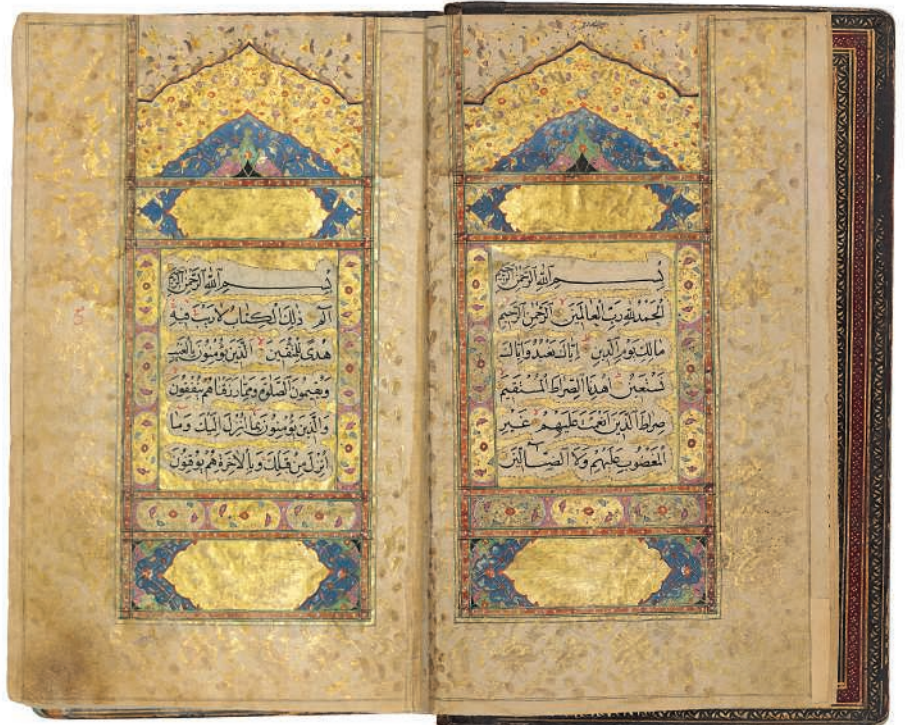 بِسْمِ اللّٰهِ الرَّحْمٰنِ الرَّحِيْمِ
اَلْحَمْدُ لِلّٰهِ رَبِّ الْعَالَمِيْنَ الرَّحْمٰنِ الرَّحِيْمِ
مَالِكِ يَوْمِ الدِّيْنِ اِيَّاكَ نَعْبُدُ وَاِيَّاكَ
نَسْتَعِيْنُ اِهْدِنَا الصِّرَاطَ الْمُسْتَقِيْمَ
صِرَاطَ الَّذِيْنَ اَنْعَمْتَ عَلَيْهِمْ غَيْرِ
الْمَغْضُوْبِ عَلَيْهِمْ وَلَا الضَّآلِّيْنَ
بِسْمِ اللّٰهِ الرَّحْمٰنِ الرَّحِيْمِ
الٓمٓ ذٰلِكَ الْكِتَابُ لَا رَيْبَ فِيْهِ
هُدًى لِلْمُتَّقِيْنَ الَّذِيْنَ يُؤْمِنُوْنَ بِالْغَيْبِ
وَيُقِيْمُوْنَ الصَّلٰوةَ وَمِمَّا رَزَقْنَاهُمْ يُنْفِقُوْنَ
وَالَّذِيْنَ يُؤْمِنُوْنَ بِمَا اُنْزِلَ اِلَيْكَ وَمَا
اُنْزِلَ مِنْ قَبْلِكَ وَبِالْاٰخِرَةِ هُمْ يُوْقِنُوْنَ